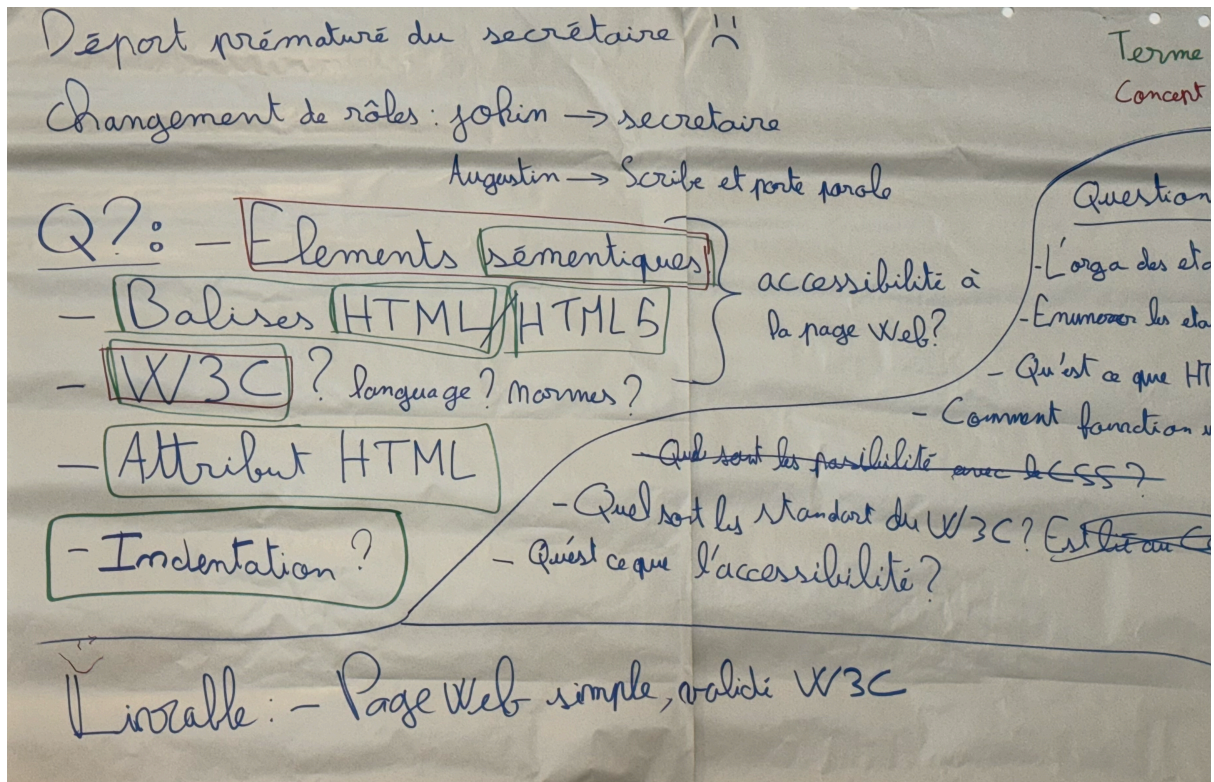 Départ prématuré du secrétaire
Changement de rôles : jokin → secretaire
Augustin → Scribe et porte parole
Q?: - Elements sémentiques
- Balises HTML/HTML5
accessibilité à
la page Web?
- W3C ? language? Normes?
- Attribut HTML
- Indentation ?
Terme
Concept
Question
- L'orga des eta
- Enumerer les eta
- Qu'est ce que HT
- Comment fonnction
- Quel sont les possibilité avec le CSS ?
- Quel sont les standart du W3C? Est lié au C
- Qu'est ce que l'accessibilité?
Livrable : - Page Web simple, validé W3C